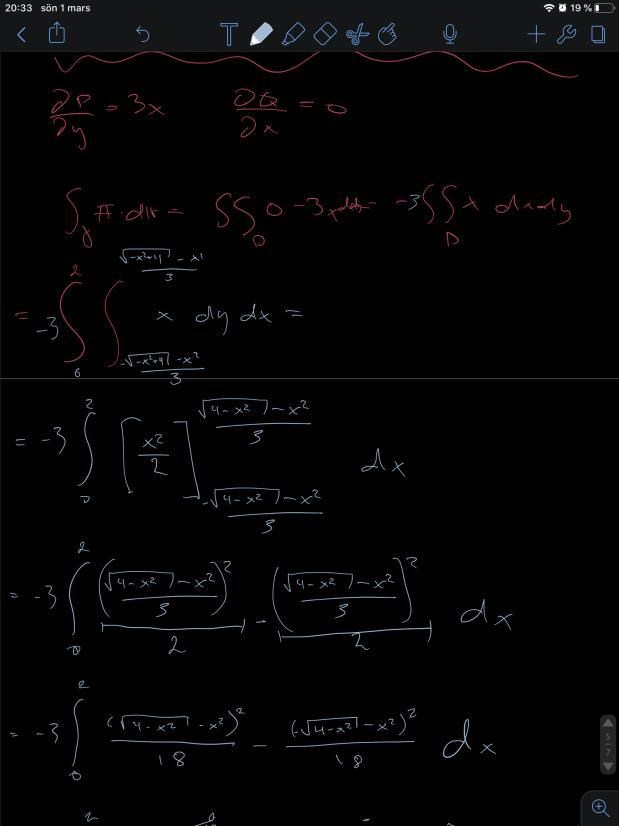 20:33 sön 1 mars
19 %
T
∂P/∂y = 3x ∂Q/∂x = 0
= -3 ∫₀² ∫_{(-√(-x²+4) - x²)/3}^{(√(-x²+4) - x²)/3} x dy dx =
= -3 ∫₀² [x²/2]_{(-√(4-x²) - x²)/3}^{(√(4-x²) - x²)/3} dx
= -3 ∫₀² ((√(4-x²) - x²)/3)²/2 - ((√(4-x²) - x²)/3)²/2 dx
= -3 ∫₀² (√(4-x²) - x²)²/18 - (-√(4-x²) - x²)²/18 dx
5
7